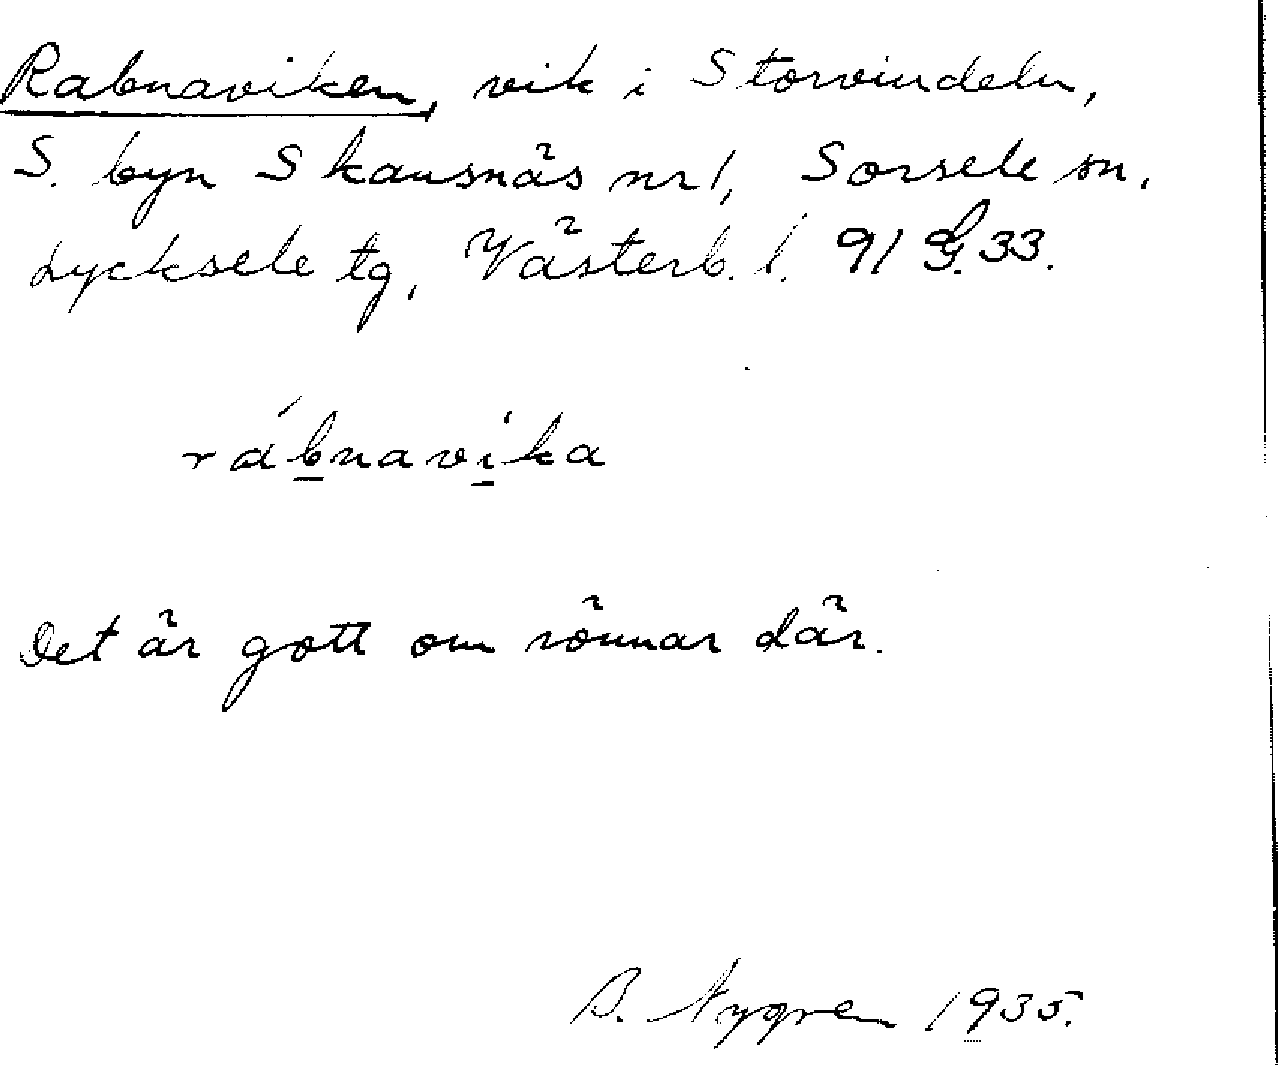 Rabnaviken, vik i Storvindeln,
S. byn Skansnäs nr 1, Sorsele sn,
Lycksele tg, Västerb. l. 91 33.
rábnavika
Det är gott om rönnar där.
B. Nygren 1935.